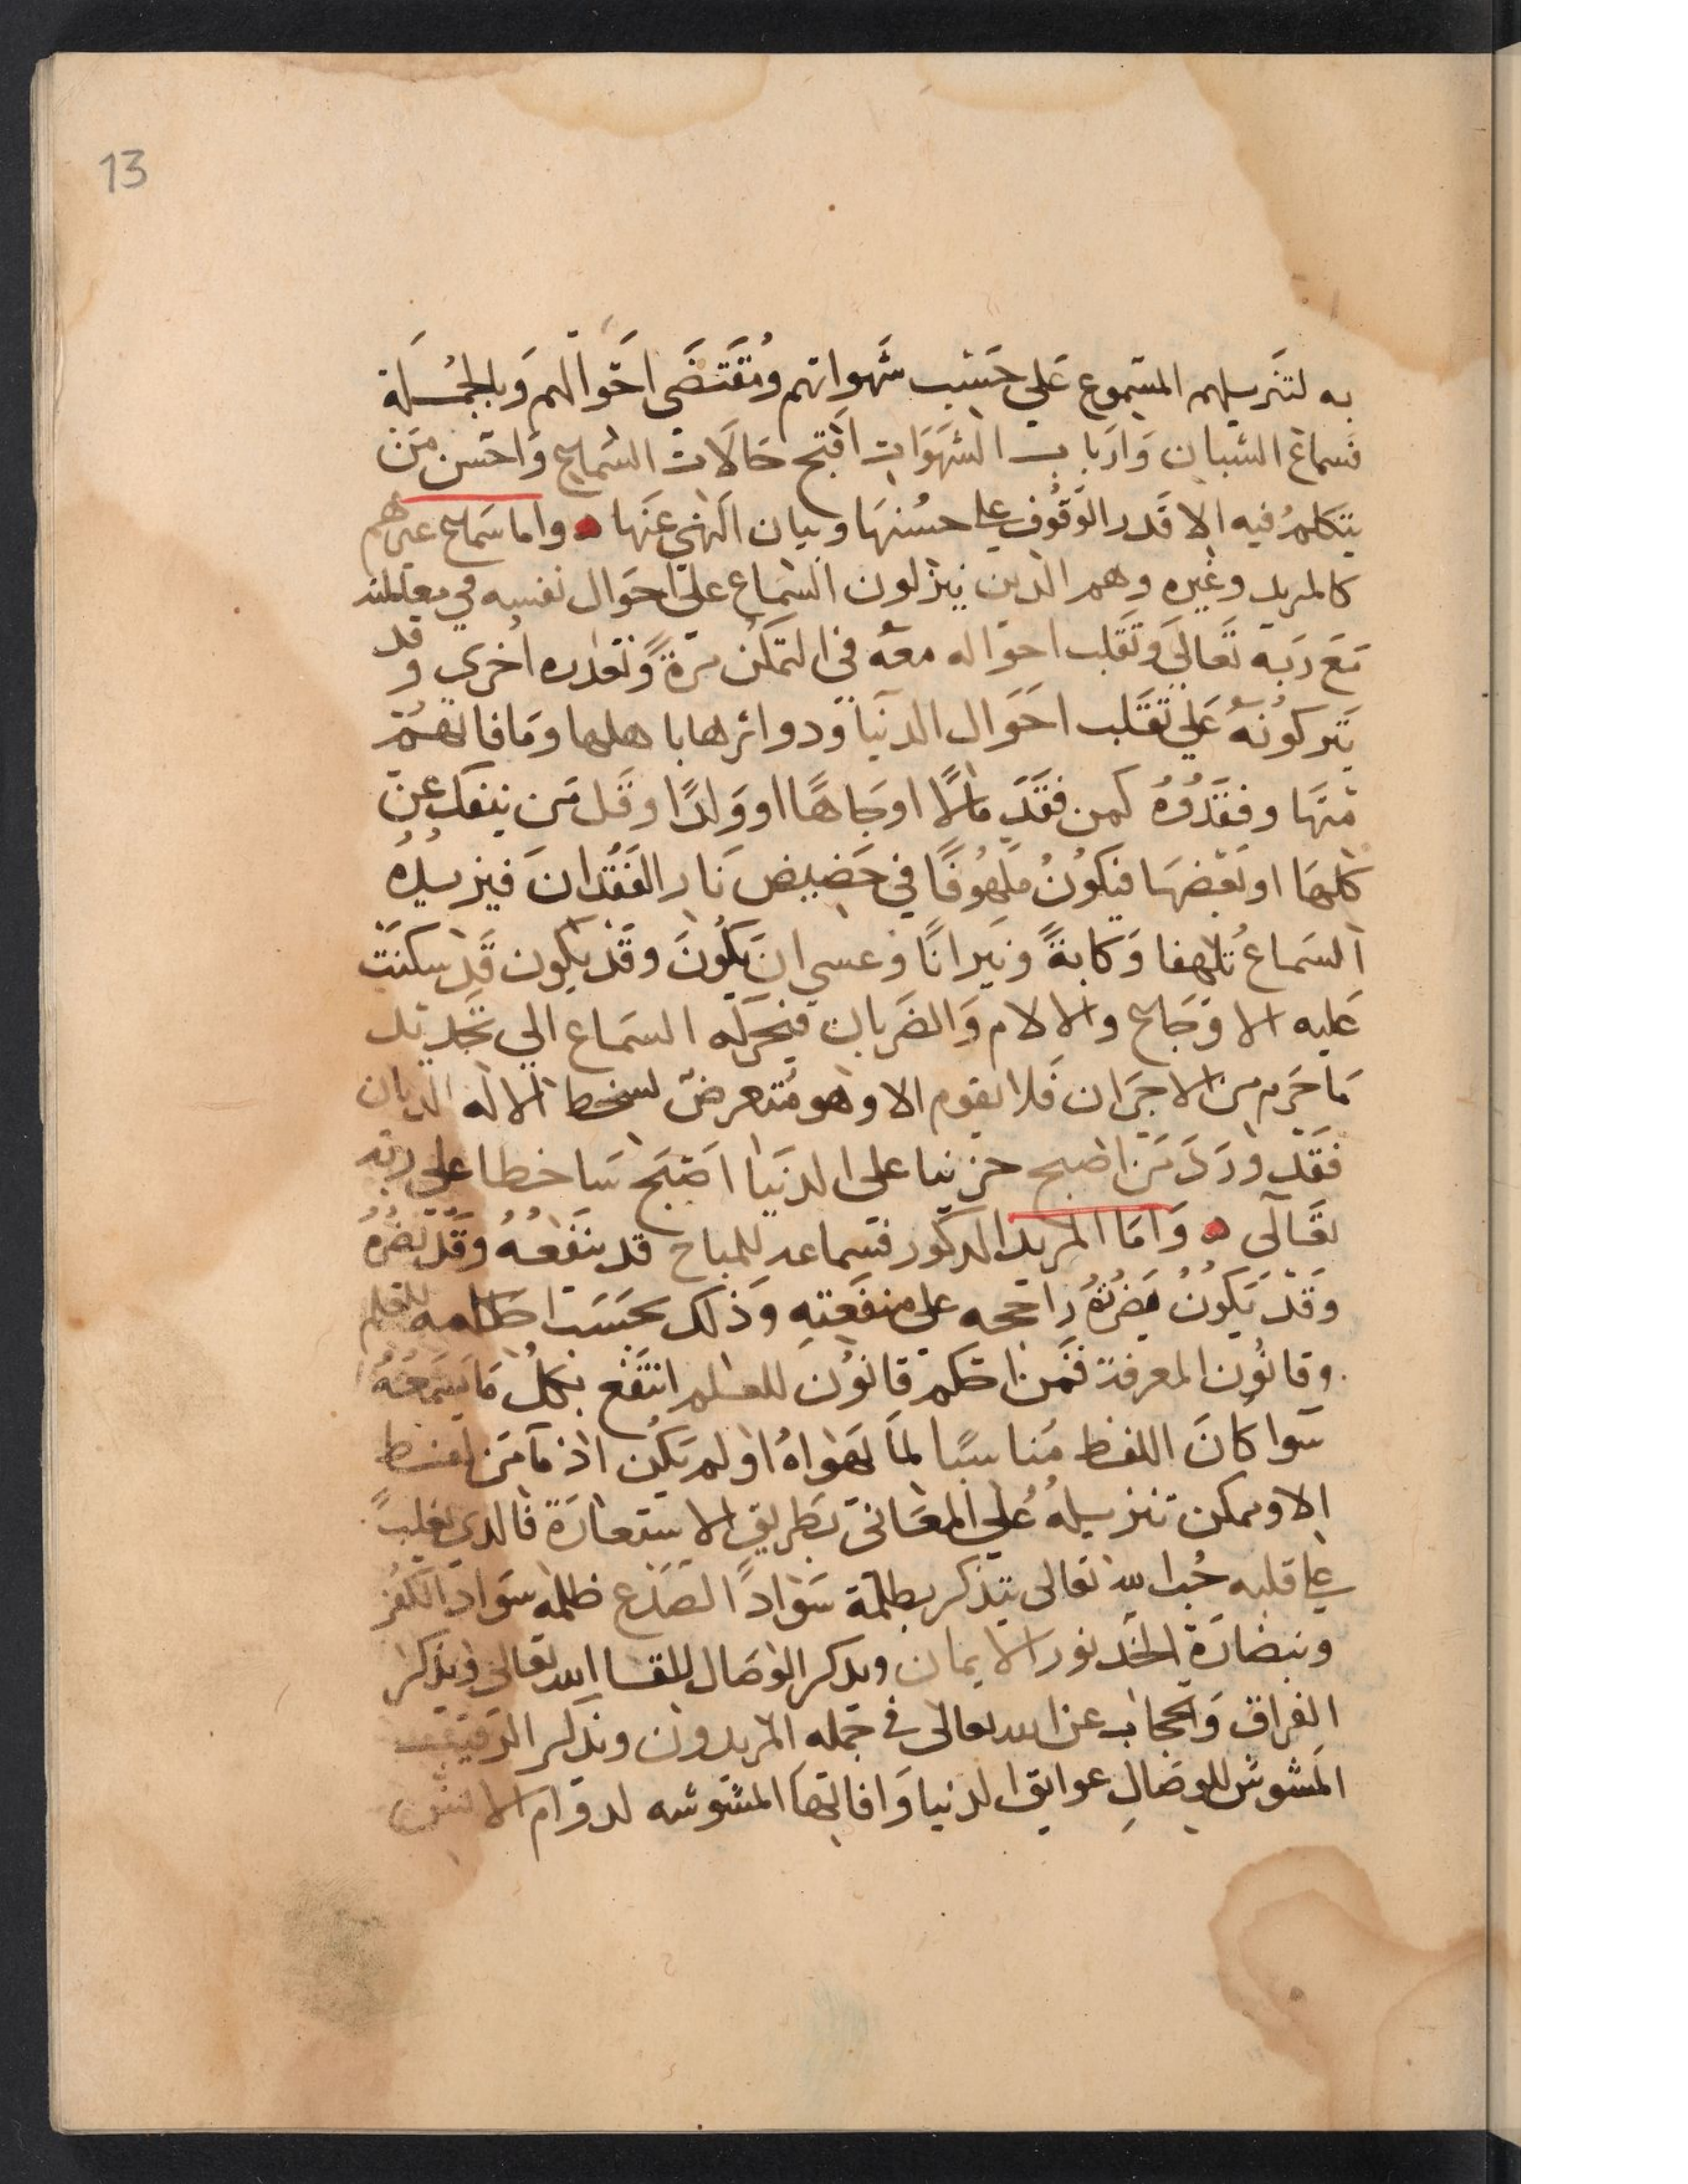 13
به لتنزيلهم المسموع على حسب شهواتهم ومقتضى احوالهم وبالجملة
فسماع الشبان وارباب الشهوات اقبح حالات السماع واحسن من
يتكلم فيه الا قدر الوقوف على حسنها وبيان النهي عنها واما سماع غيرهم
كالمريد وغيره وهم الذين ينزلون السماع على احوال نفسه في معاملته
مع ربه تعالى وتقلب احواله معه في التمكن مرة وتعذره اخرى وقد
يتركونه على تقلب احوال الدنيا ودوائرها باهلها وما فاتهم
منها وفقدوه كمن فقد مالا او جاها او ولدا وقل من ينفك عن
كلها او بعضها فيكون ملهوفا في حضيض نار الفقدان فيزيده
السماع تلهفا وكابة ونيرانا وعسى ان يكون وقد يكون قد سكنت
عليه الاوجاع والالام والضربان فيحركه السماع الى تجديد
ما حرم من الاحزان فلا يقوم الا وهو متعرض لسخط الاله الديان
فقد ورد من اصبح حزينا على الدنيا اصبح ساخطا على ربه
تعالى واما المريد المذكور فسماعه للمباح قد ينفعه وقد يضره
وقد يكون مضرته راجحه على منفعته وذلك بحسب احكامه للعلم
وقانون المعرفة فمن احكم قانون للعلم انتفع بكل ما يسمعه
سوا كان اللفظ مناسبا لما يهواه او لم يكن اذ ما من لفظ
الا ويمكن تنزيله على المعاني بطريق الاستعارة فالذي يغلب
على قلبه حب الله تعالى يتذكر بظلمة سواد الصدغ ظلمه سواد الكفر
وبنضارة الخد نور الايمان ويذكر الوصال للقا الله تعالى ويذكر
الفراق والحجاب عن الله تعالى في جمله المريدون ويذكر الرقيب
المشوش للوصال عوايق الدنيا وافاتها المشوشه لدوام الانس